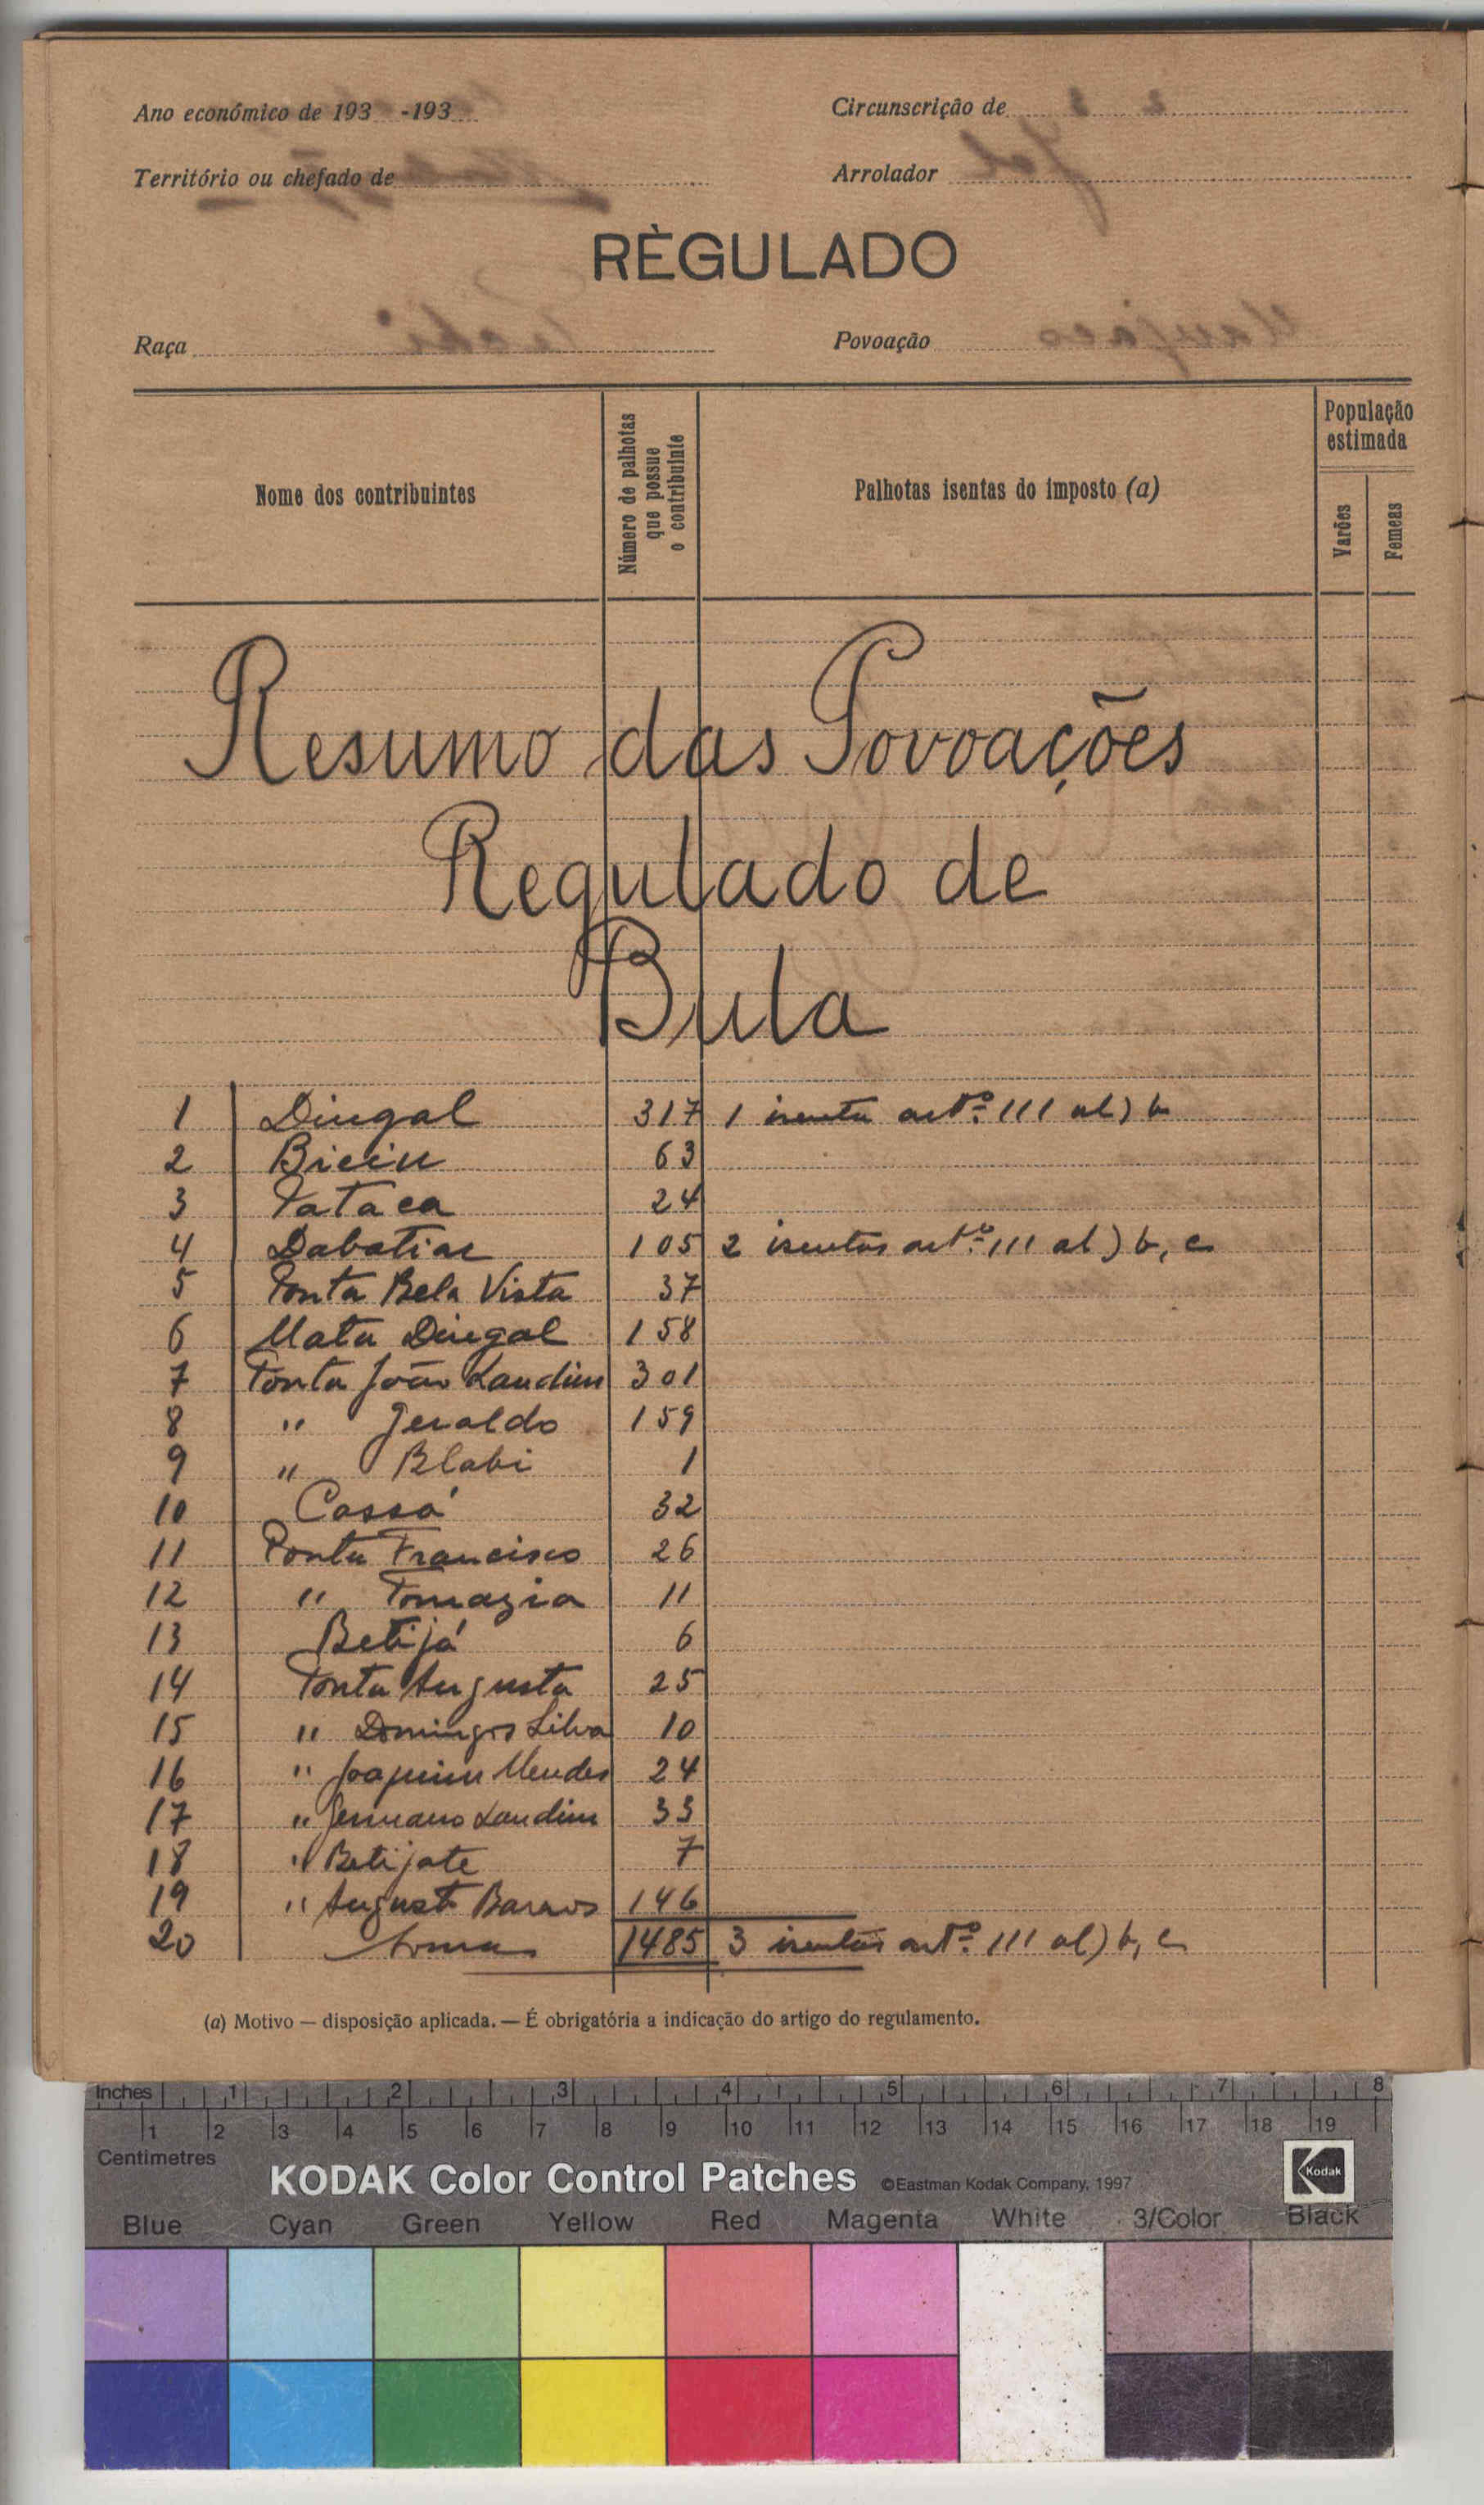 Ano económico de 193 -193
Circunscrição de
Território ou chefado de
Arrolador
RÈGULADO
Raça
Povoação
Nome dos contribuintes
Número de palhotas que possue o contribuinte
Palhotas isentas do imposto (a)
População estimada
Varões
Femeas
Resumo das Povoações
Regulado de
Bula
1 Dingal 317 1 isenta artº 111 al) b
2 Biciu 63
3 Pataca 24
4 Dabatiar 105 2 isentas artº 111 al) b, c
5 Ponta Bela Vista 37
6 Mata Dingal 158
7 Ponta João Landim 301
8 " Geraldo 159
9 " Blabi 1
10 Cassá 32
11 Ponta Francisco 26
12 " Tomazia 11
13 Betijá 6
14 Ponta Augusta 25
15 " Domingos Silva 10
16 " Joaquim Mendes 24
17 " Germano Landim 33
18 " Betijate 7
19 " Augusto Barros 146
20 Soma 1485 3 isentas artº 111 al) b, c
(a) Motivo — disposição aplicada. — É obrigatória a indicação do artigo do regulamento.
Inches 1 2 3 4 5 6 7 8
1 2 3 4 5 6 7 8 9 10 11 12 13 14 15 16 17 18 19
Centimetres
KODAK Color Control Patches ©Eastman Kodak Company, 1997 Kodak
Blue Cyan Green Yellow Red Magenta White 3/Color Black